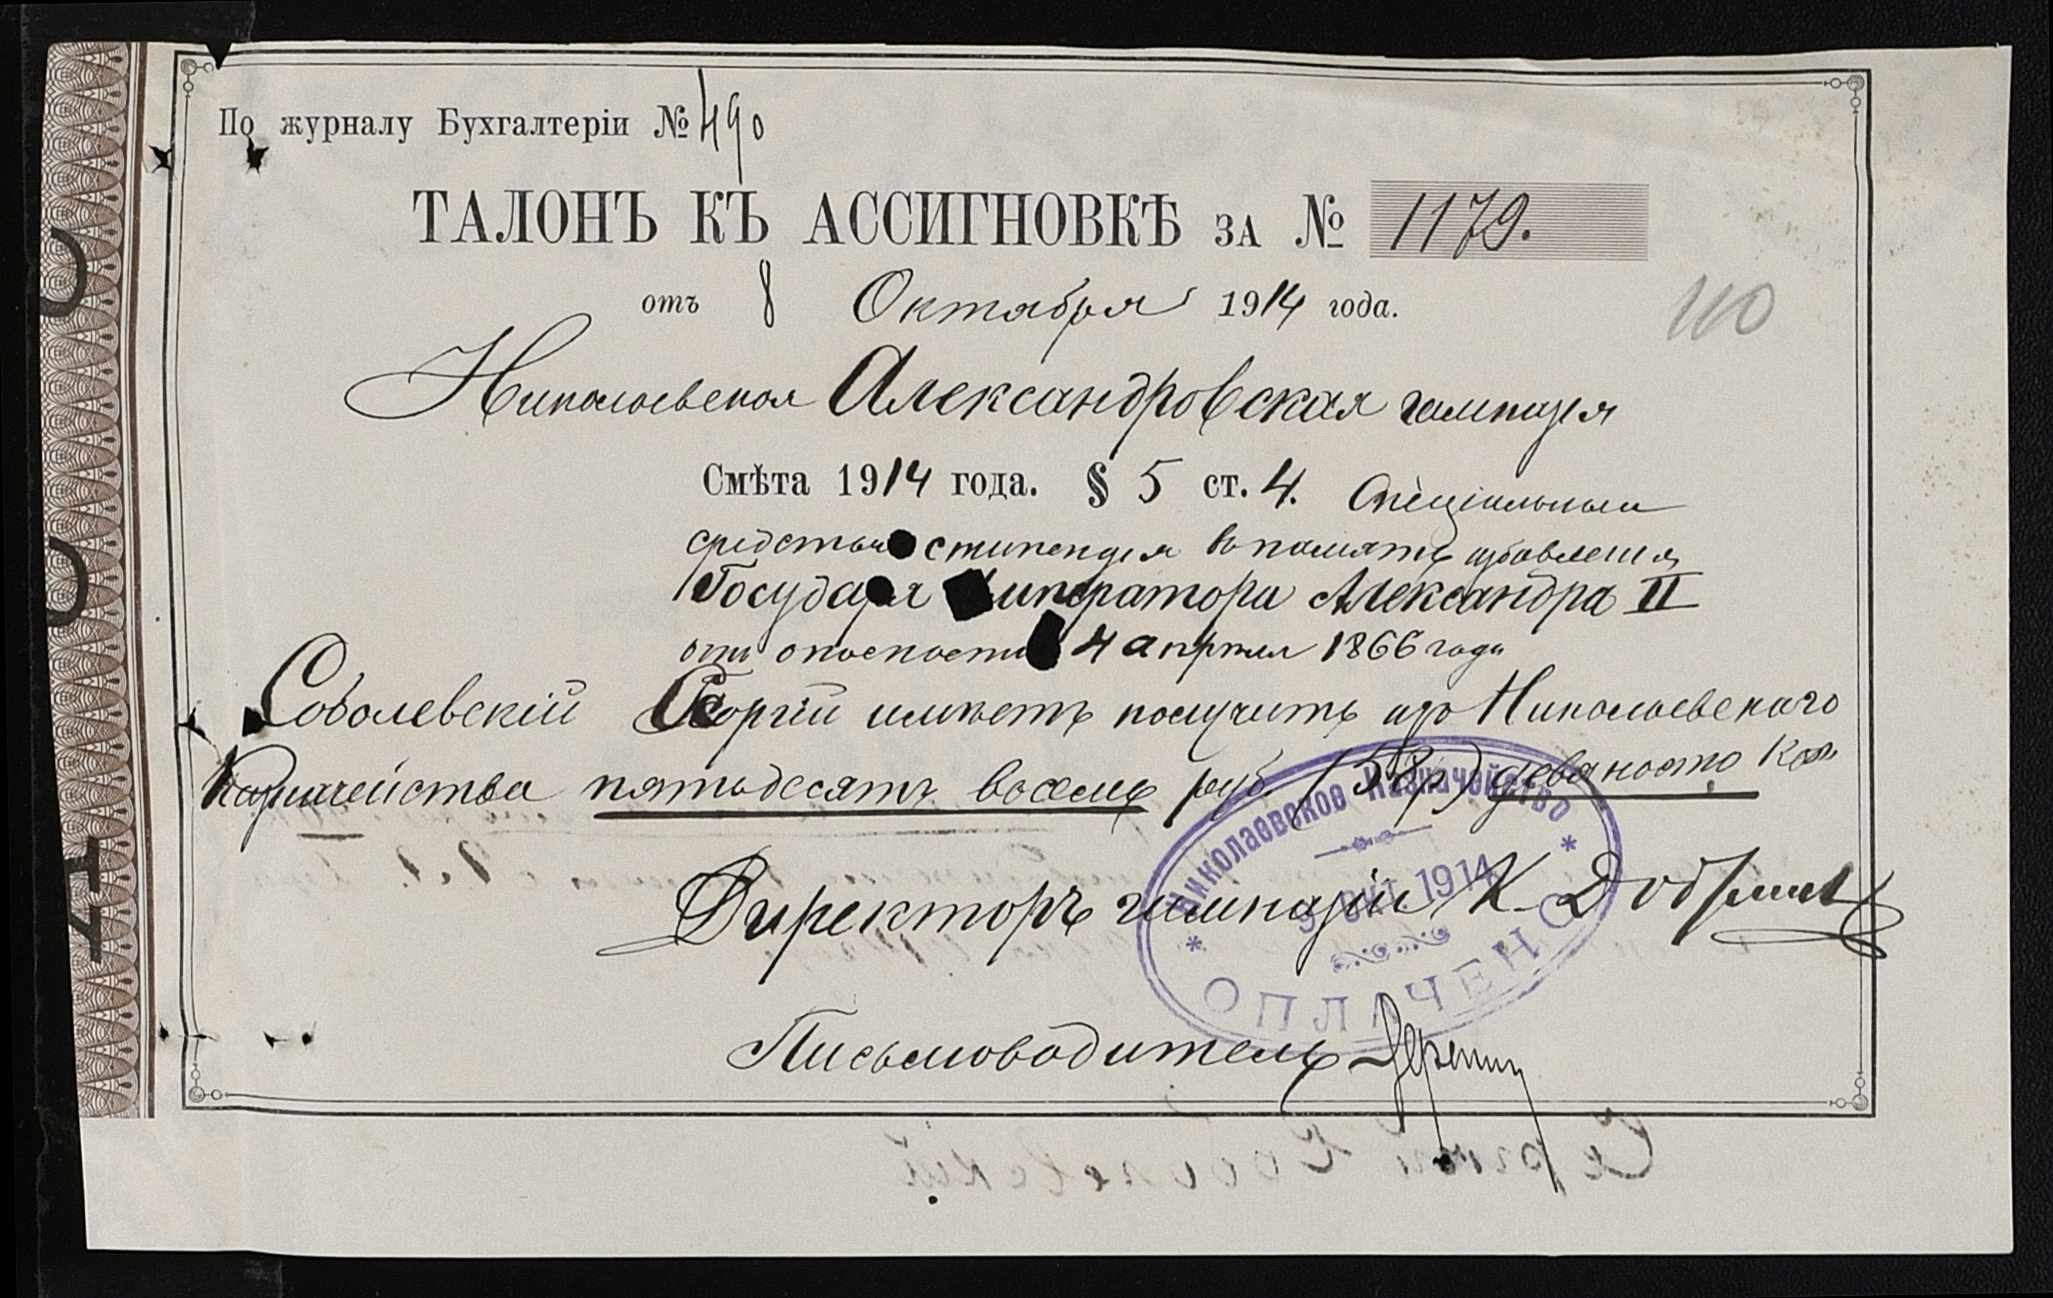 По журналу Бухгалтеріи № 490
ТАЛОНЪ КЪ АССИГНОВКѢ ЗА № 1179.
отъ 8 Октября 1914 года.
110
Николаевская Александровская гимназія
Смѣта 1914 года. § 5 ст. 4. Спеціальныя
средства стипендія въ память избавленія
Государя Императора Александра II
отъ опасности 4 апрѣля 1866 года
Соболевскій Георгій имѣетъ получить изъ Николаевскаго
Казначейства пятьдесятъ восемь руб. (58 р) девяносто коп
Николаевское Казначейство
9 ОКТ 1914
ОПЛАЧЕНО
Директоръ гимназіи К.
Письмоводитель